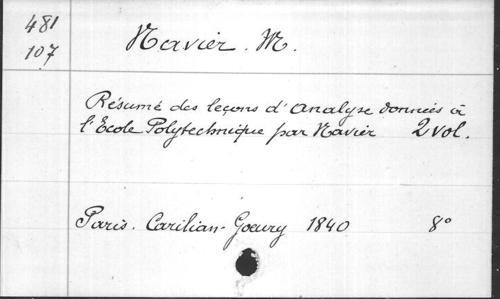 481
107
Navier. M.
Résumé des leçons d'analyse données à
l'Ecole Polytechnique par Navier 2 vol.
Paris. Carilian-Goeury 1840 8°